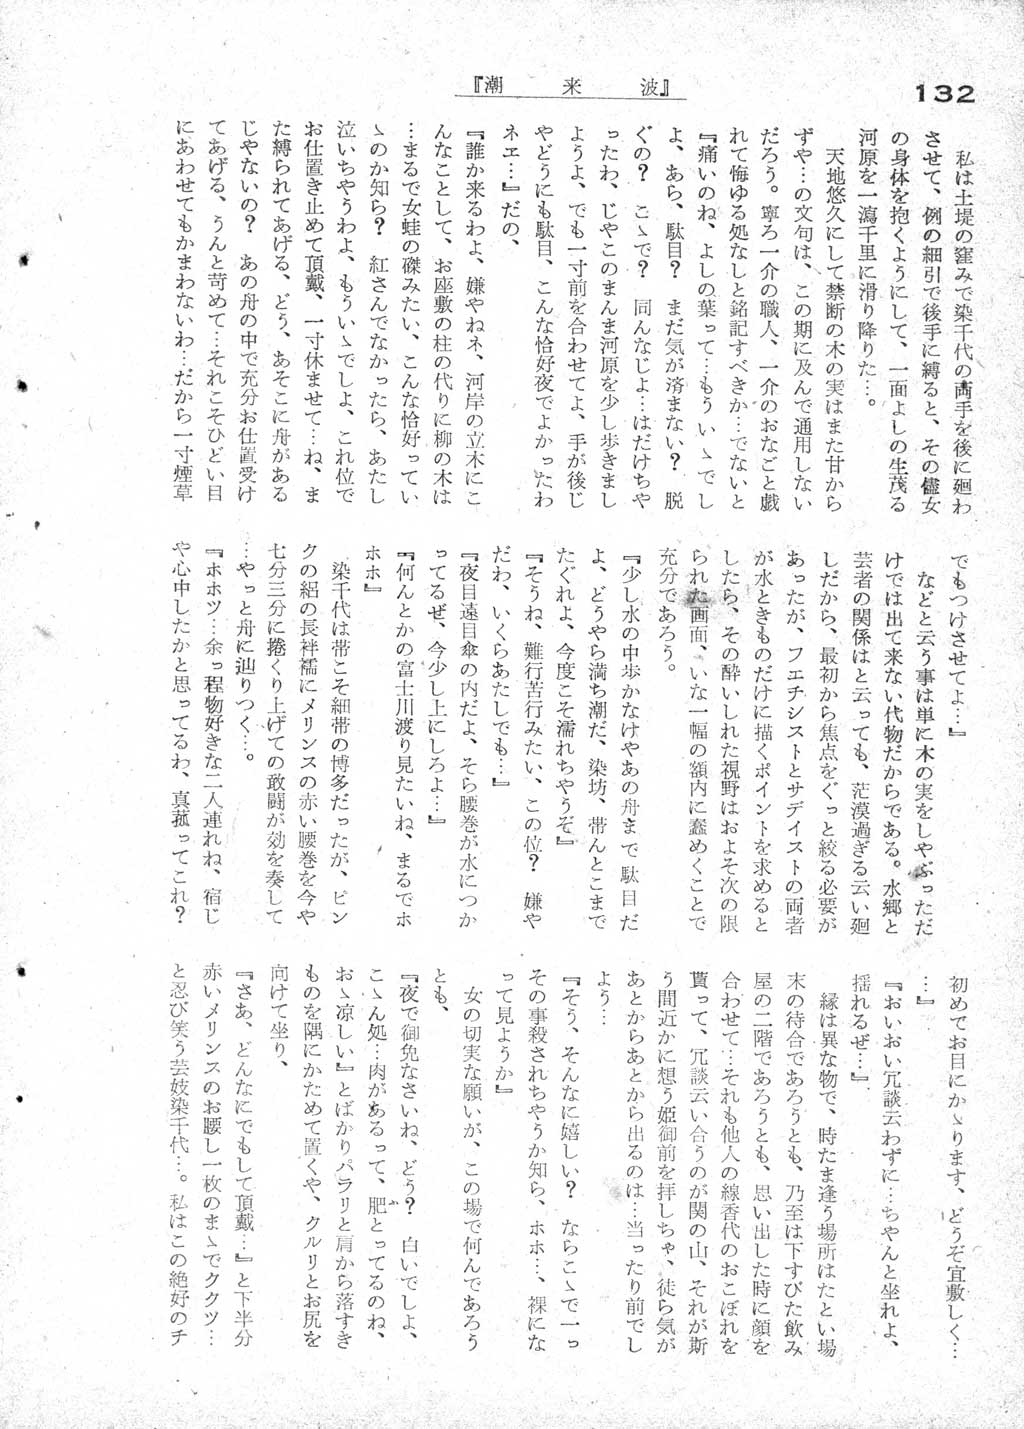 132
『潮来波』
私は土堤の窪みで染千代の両手を後に廻わ
させて、例の細引で後手に縛ると、その儘女
の身体を抱くようにして、一面よしの生茂る
河原を一瀉千里に滑り降りた…。
天地悠久にして禁断の木の実はまた甘から
ずや…の文句は、この期に及んで通用しない
だろう。寧ろ一介の職人、一介のおなごと戯
れて悔ゆる処なしと銘記すべきか…でないと
『痛いのね、よしの葉って…もういゝでし
よ、あら、駄目？　まだ気が済まない？　脱
ぐの？　こゝで？　同んなじよ…はだけちや
ったわ、じやこのまんま河原を少し歩きまし
ようよ、でも一寸前を合わせてよ、手が後じ
やどうにも駄目、こんな恰好夜でよかったわ
ネエ…』だの、
『誰か来るわよ、嫌やねネ、河岸の立木にこ
んなことして、お座敷の柱の代りに柳の木は
…まるで女蛙の磔みたい、こんな恰好ってい
ゝのか知ら？　紅さんでなかったら、あたし
泣いちやうわよ、もういゝでしよ、これ位で
お仕置き止めて頂戴、一寸休ませて…ね、ま
た縛られてあげる、どう、あそこに舟がある
じやないの？　あの舟の中で充分お仕置受け
てあげる、うんと苛めて…それこそひどい目
にあわせてもかまわないわ…だから一寸煙草
でもつけさせてよ…』
などと云う事は単に木の実をしやぶっただ
けでは出て来ない代物だからである。水郷と
芸者の関係はと云っても、茫漠過ぎる云い廻
しだから、最初から焦点をぐっと絞る必要が
あったが、フエチシストとサデイストの両者
が水ときものだけに描くポイントを求めると
したら、その酔いしれた視野はおよそ次の限
られた画面、いな一幅の額内に蠢めくことで
充分であろう。
『少し水の中歩かなけやあの舟まで駄目だ
よ、どうやら満ち潮だ、染坊、帯んとこまで
たぐれよ、今度こそ濡れちやうぞ』
『そうね、難行苦行みたい、この位？　嫌や
だわ、いくらあたしでも…』
『夜目遠目傘の内だよ、そら腰巻が水につか
ってるぜ、今少し上にしろよ…』
『何んとかの富士川渡り見たいね、まるでホ
ホホ』
染千代は帯こそ細帯の博多だったが、ピン
クの絽の長袢襦にメリンスの赤い腰巻を今や
七分三分に捲くり上げての敢闘が効を奏して
…やっと舟に辿りつく…。
『ホホツ…余っ程物好きな二人連れね、宿じ
や心中したかと思ってるわ、真菰ってこれ？
初めてお目にかゝります、どうぞ宜敷しく…
…』
『おいおい冗談云わずに…ちやんと坐れよ、
揺れるぜ…』
縁は異な物で、時たま逢う場所はたとい場
末の待合であろうとも、乃至は下すびた飲み
屋の二階であろうとも、思い出した時に顔を
合わせて…それも他人の線香代のおこぼれを
貰って、冗談云い合うのが関の山、それが斯
う間近かに想う姫御前を拝しちゃ、徒ら気が
あとからあとから出るのは…当ったり前でし
よう…
『そう、そんなに嬉しい？　ならこゝで一っ
その事殺されちやうか知ら、ホホ…、裸にな
って見ようか』
女の切実な願いが、この場で何んであろう
とも、
『夜で御免なさいね、どう？　白いでしよ、
こゝん処…肉があるって、肥とってるのね、
おゝ涼しい』とばかりパラリと肩から落すき
ものを隅にかためて置くや、クルリとお尻を
向けて坐り、
『さあ、どんなにでもして頂戴…』と下半分
赤いメリンスのお腰し一枚のまゝでククツ…
と忍び笑う芸妓染千代…。私はこの絶好のチ